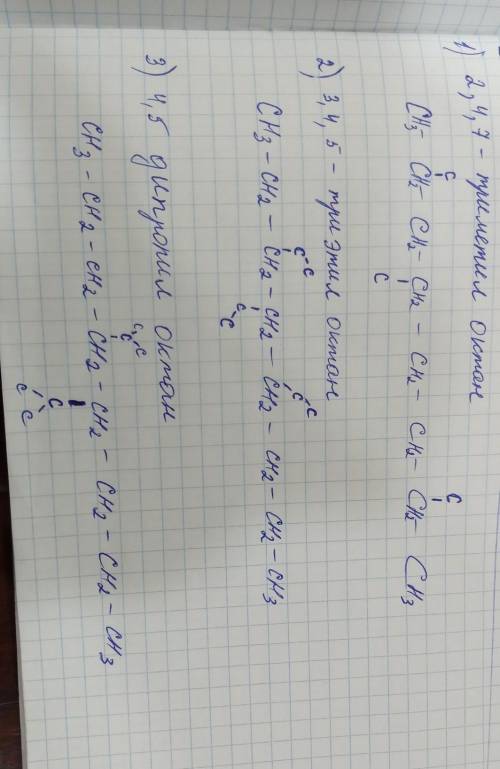 1) 2,4,7 - триметил октан
C C
CH3 - CH2 - CH2 - CH2 - CH2 - CH2 - CH2 - CH3
C
2) 3,4,5 - три этил октан
C - C C - C
CH3 - CH2 - CH2 - CH2 - CH2 - CH2 - CH2 - CH3
C - C
3) 4,5 дипропил октан
C - C - C
CH3 - CH2 - CH2 - CH2 - CH2 - CH2 - CH2 - CH3
C - C - C